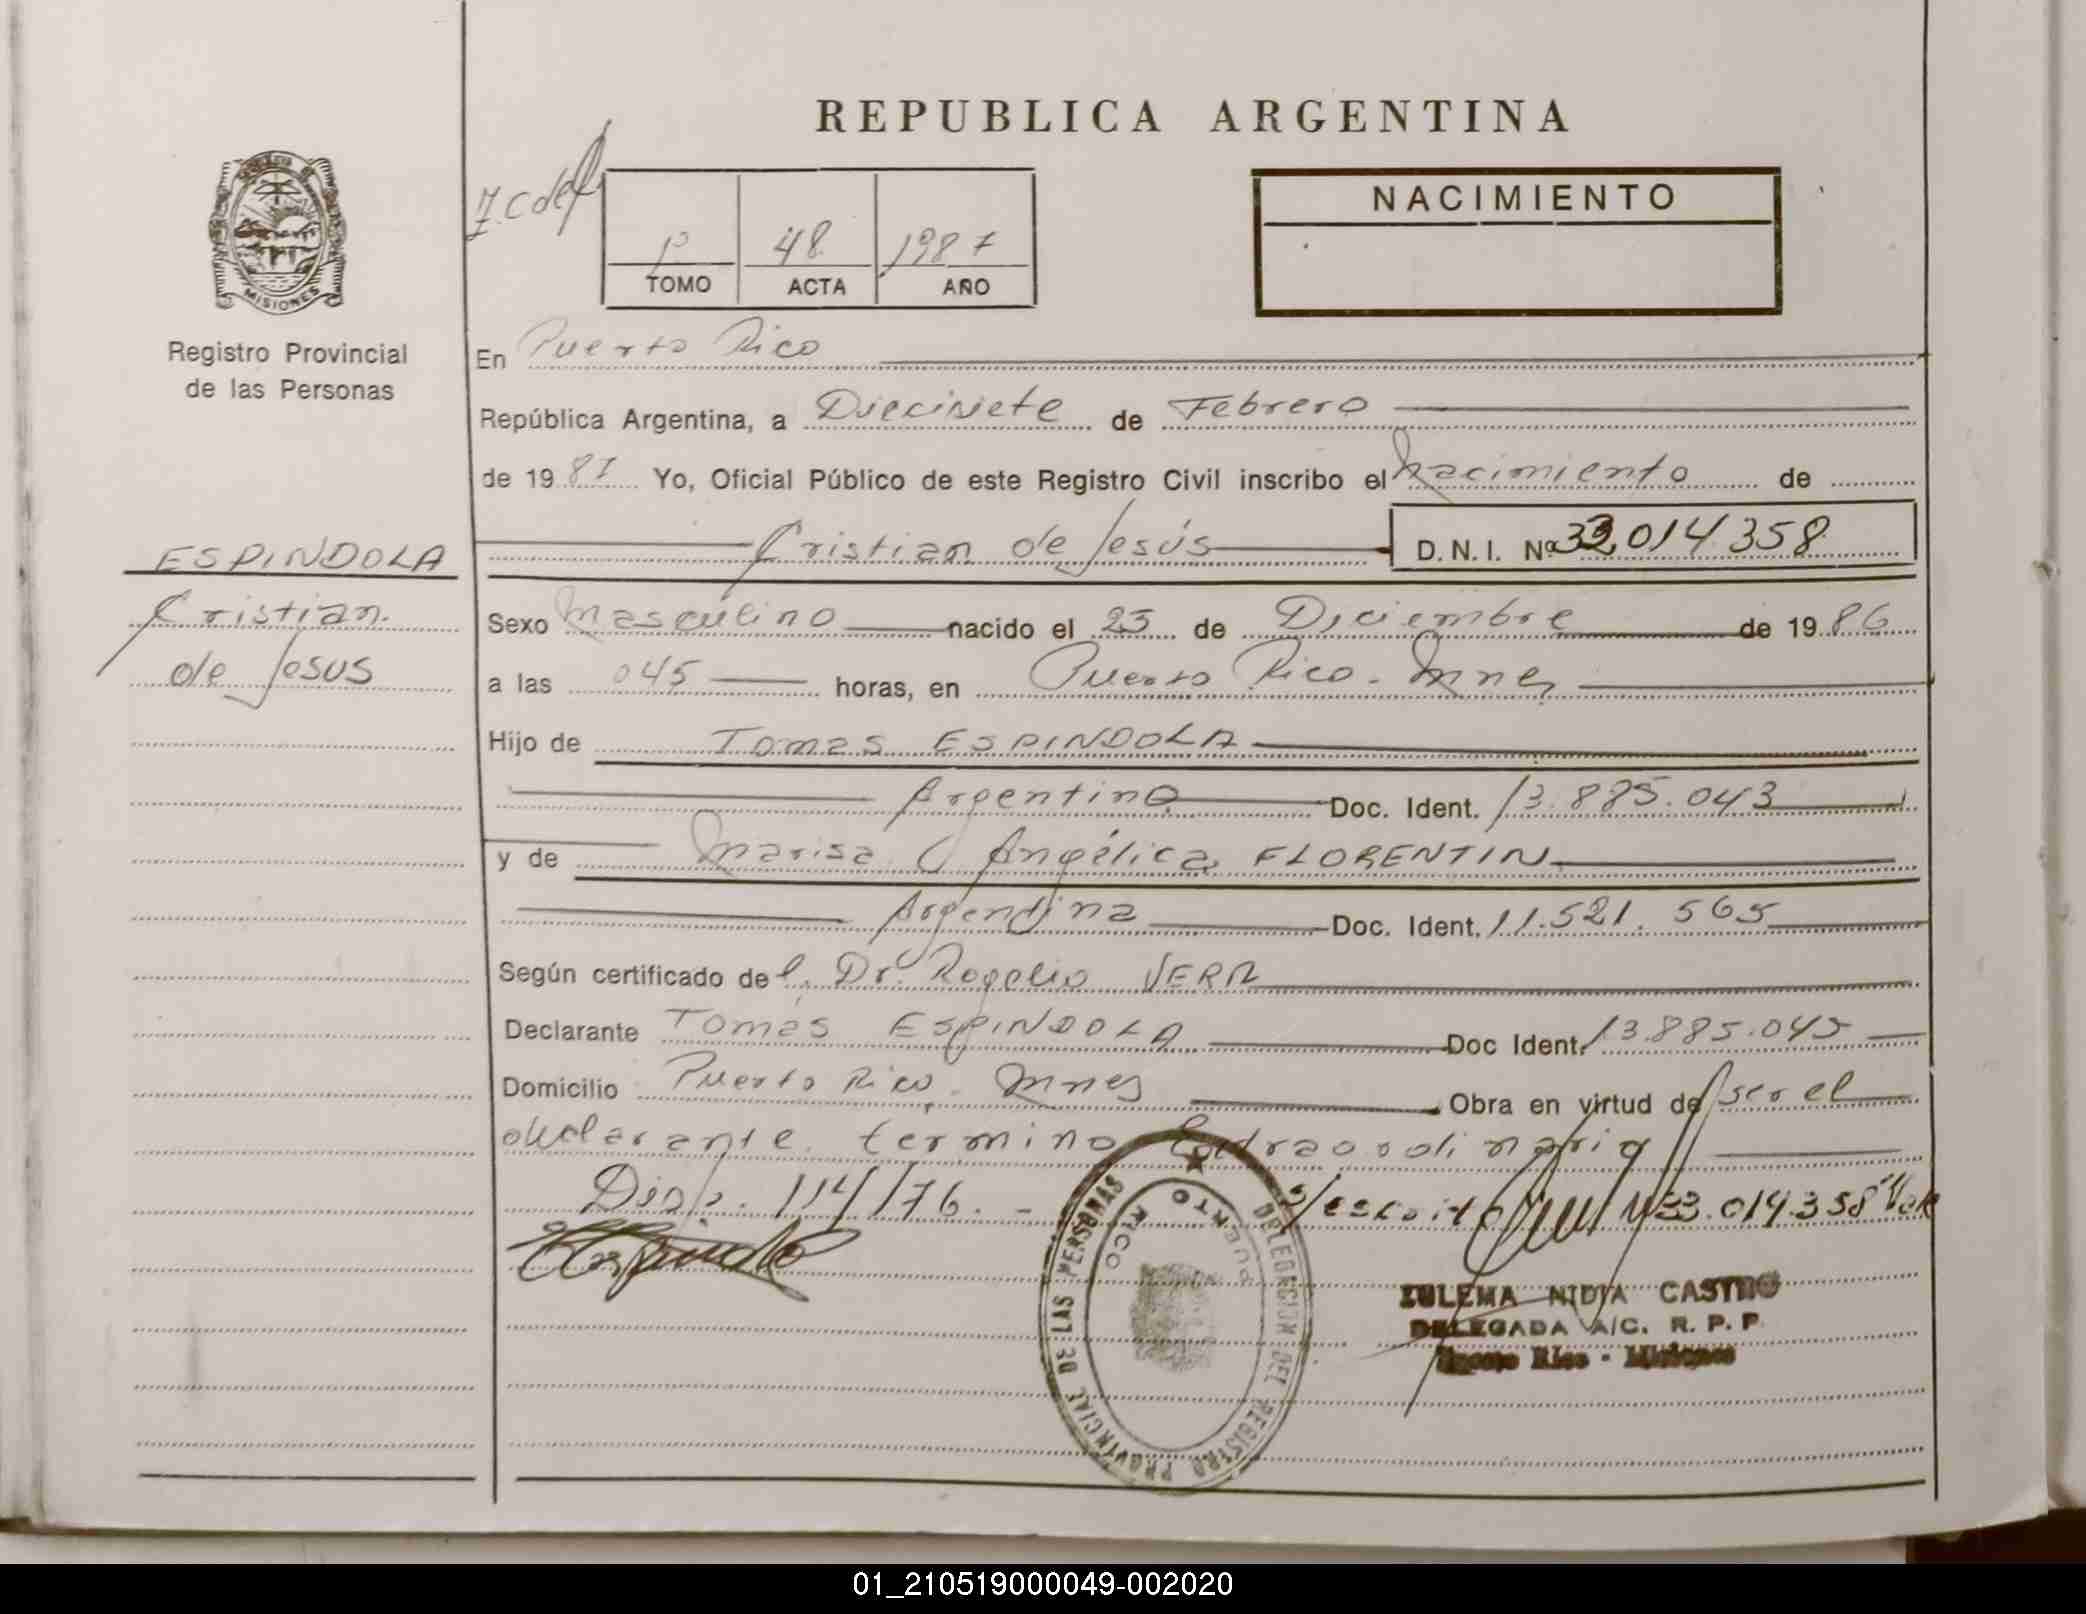 REPUBLICA ARGENTINA
NACIMIENTO
1º 48 1987
TOMO ACTA AÑO
MISIONES
Registro Provincial
de las Personas
En Puerto Rico
República Argentina, a Diecisiete de Febrero
de 1987 Yo, Oficial Público de este Registro Civil inscribo el Nacimiento de
Cristian de Jesús D.N.I. Nº 33.014358
ESPINDOLA
Cristian
de Jesus
Sexo Masculino nacido el 25 de Diciembre de 1986
a las 045 horas, en Puerto Rico - Mnes
Hijo de Tomas ESPINDOLA
Argentino Doc. Ident. 13.885.043
y de Marisa Angélica FLORENTIN
Argentina Doc. Ident. 11.521.565
Según certificado del Dr. Rogelio VERA
Declarante Tomas ESPINDOLA Doc Ident. 13.885.045
Domicilio Puerto Rico. Mnes Obra en virtud de ser el
declarante. termino Extraordinario
Disp. 114/76. - S/escrito 33.014.358 Vale
DELEGACION DEL REGISTRO PROVINCIAL DE LAS PERSONAS
PUERTO RICO
ZULEMA NIDIA CASTRO
DELEGADA A/C. R. P. P
Puerto Rico - Misiones
01_210519000049-002020